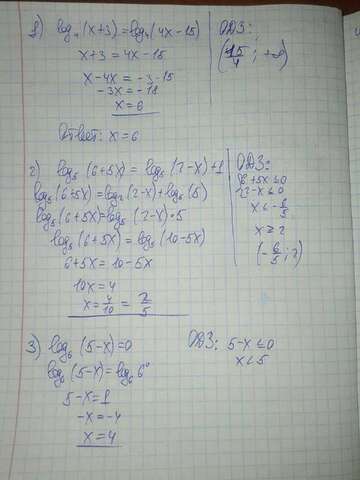 1) log₄(x+3)=log₄(4x-15)
x+3 = 4x-15
x-4x = -3-15
-3x = -18
x=6
Ответ: x=6
ОДЗ:
(15/4; +∞)
2) log₅(6+5x) = log₅(2-x)+1
log₅(6+5x)=log₅(2-x)+log₅(5)
log₅(6+5x)=log₅(2-x)·5
log₅(6+5x)=log₅(10-5x)
6+5x=10-5x
10x=4
x=4/10=2/5
ОДЗ:
6+5x≤0
2-x≤0
x<-6/5
x≥2
(-6/5; 2)
3) log₆(5-x)=0
log₆(5-x)=log₆6⁰
5-x=1
-x=-4
x=4
ОДЗ: 5-x≤0
x<5